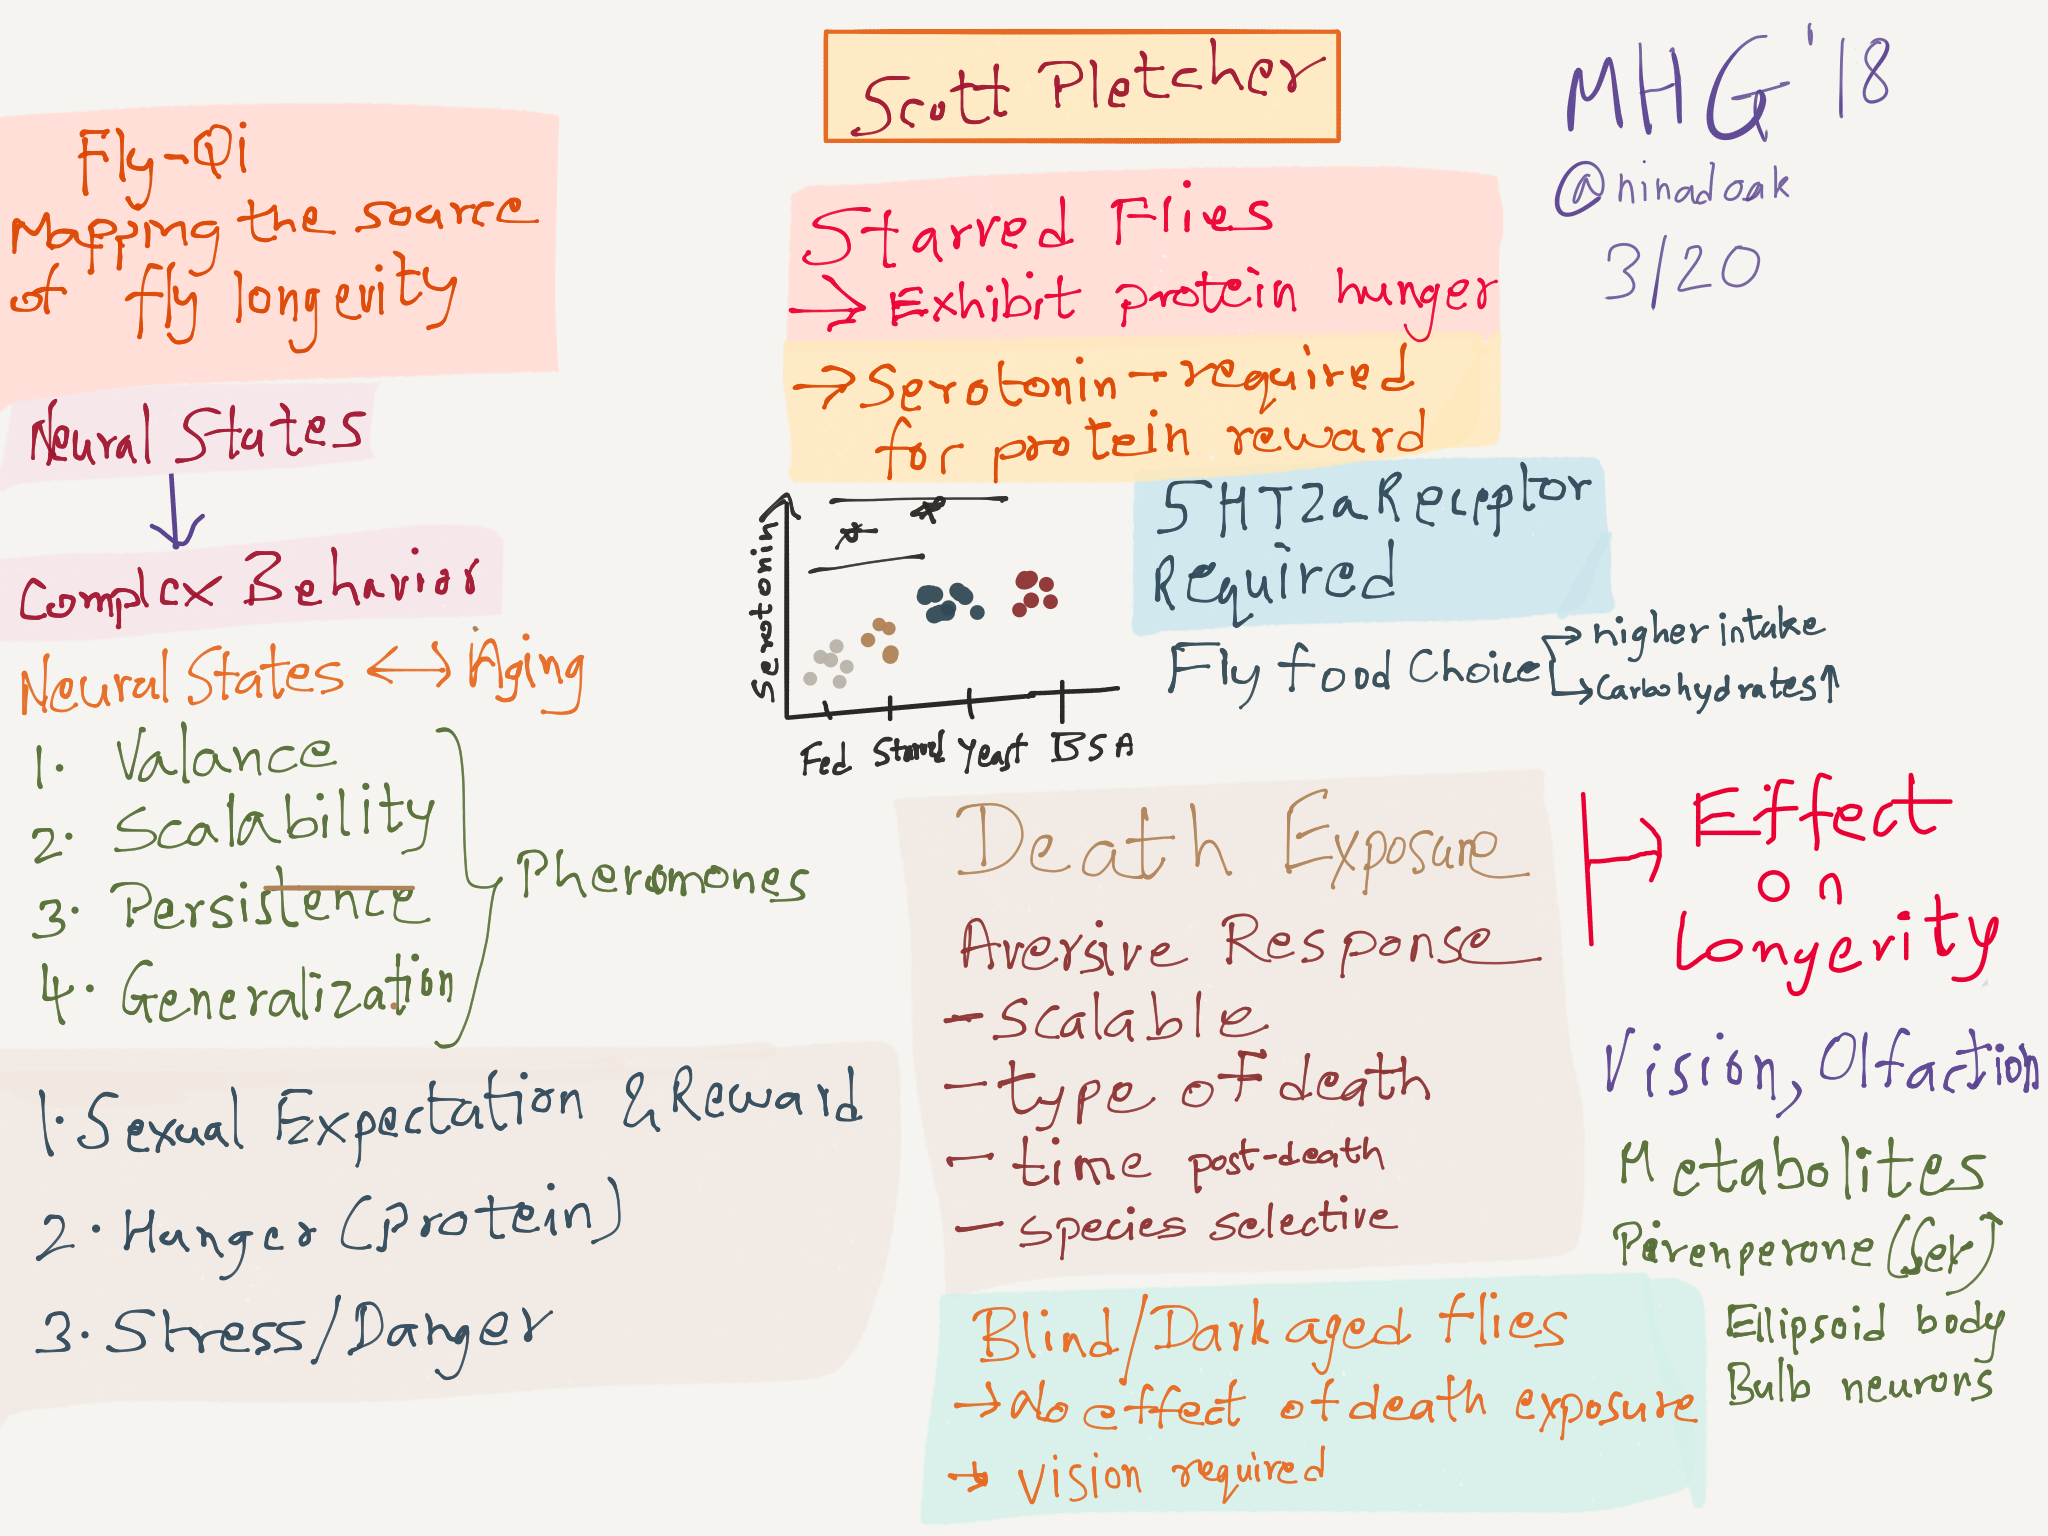 Scott Pletcher
MHG '18
@ninadoak
3/20
Fly-Qi
Mapping the source
of fly longevity
Neural States
Complex Behavior
Neural States ↔ Aging
1. Valance
2. Scalability
3. Persistence
4. Generalization
Pheromones
1. Sexual Expectation & Reward
2. Hunger (Protein)
3. Stress/Danger
Starved Flies
→ Exhibit protein hunger
→ Serotonin - required
for protein reward
Serotonin
*
*
Fed Starved Yeast BSA
5HT2a Receptor
Required
Fly food Choice
→ higher intake
→ Carbohydrates ↑
Death Exposure
Aversive Response
- Scalable
- type of death
- time post-death
- species selective
Effect
on
Longevity
Vision, Olfaction
Metabolites
Pirenperone (Ser)
Ellipsoid body
Bulb neurons
Blind/Dark aged flies
→ No effect of death exposure
→ vision required